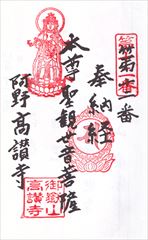 奉納経
本尊聖観世音菩薩
阿野高讃寺
御嶽山
高讃寺